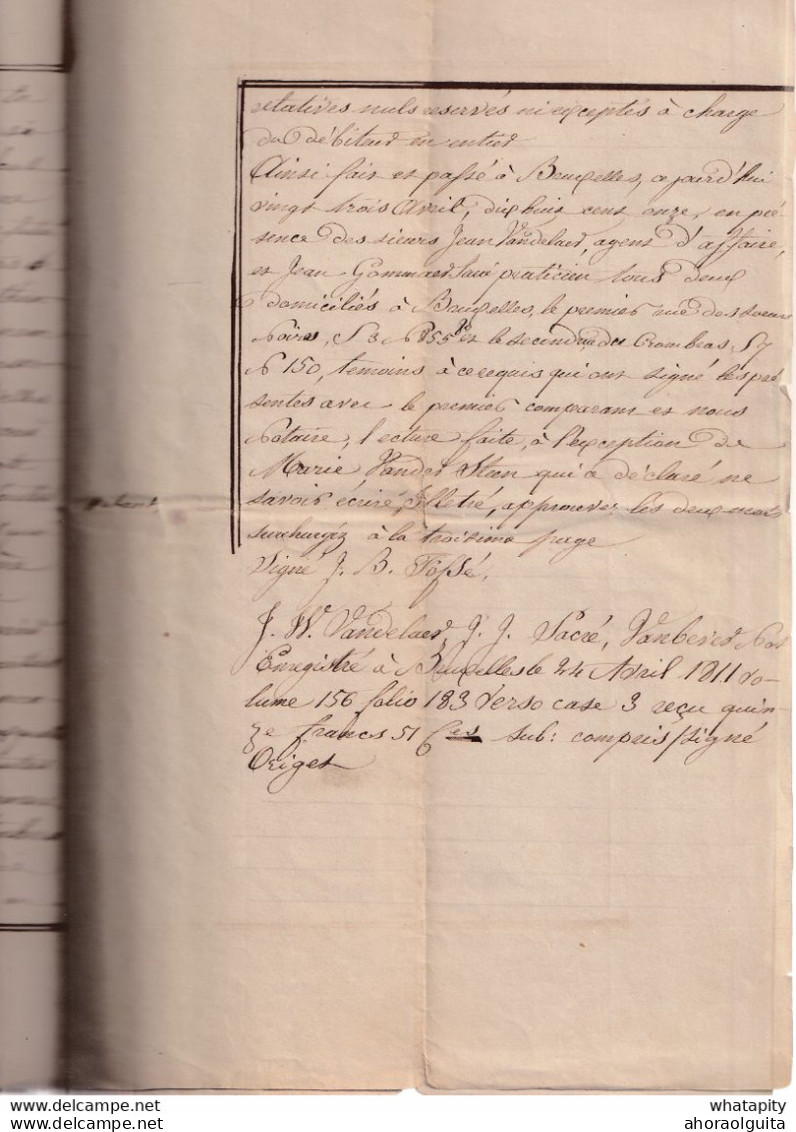 relatives nuls reservés ni exceptés à charge
du débiteur en entier
Ainsi fait et passé à Bruxelles, ce jourd'hui
vingt trois Avril, dix huit cent onze, en pré-
sence des sieurs Jean Vandelaer, agent d'affaire,
et Jean Gommaer Sacré praticien tous deux
domiciliés à Bruxelles, le premier rue des soeurs
Noires, S 3 N 855 et le second rue du Crombras, S 7
N 150, temoins à ce requis qui ont signé les pré
sentes avec le premier comparant et nous
Notaire, lecture faite, à l'exception de
Marie Vander Steen qui a déclaré ne
savoir écrire, illetré, approuvez les deux mots
surchargéz à la troisime page
Signé J. B. Fossé,
J. W. Vandelaer, J. J. Sacré, Vanbever Not
Enregistré à Bruxelles le 24 Avril 1811 vo-
lume 156 folio 183 verso case 3 reçu quin-
ze francs 51 Ces sub: compris / signé
Origet
whatapity
ahoraolguita
https://www.delcampe.net